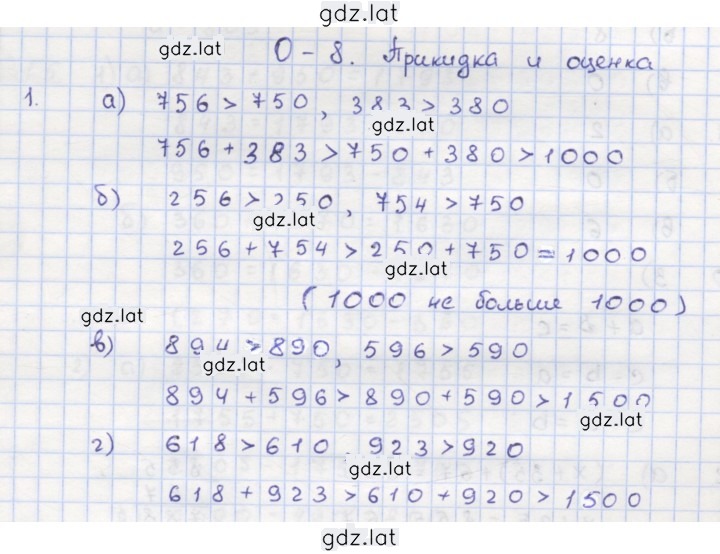 gdz.lat
gdz.lat
О - 8. Прикидка и оценка
1. а) 756 > 750, 383 > 380
gdz.lat
756 + 383 > 750 + 380 > 1000
б) 256 > 250, 754 > 750
gdz.lat
256 + 754 > 250 + 750 = 1000
gdz.lat
(1000 не больше 1000)
gdz.lat
в) 894 > 890, 596 > 590
gdz.lat
894 + 596 > 890 + 590 > 1500
gdz.lat
г) 618 > 610 923 > 920
gdz.lat
618 + 923 > 610 + 920 > 1500
gdz.lat